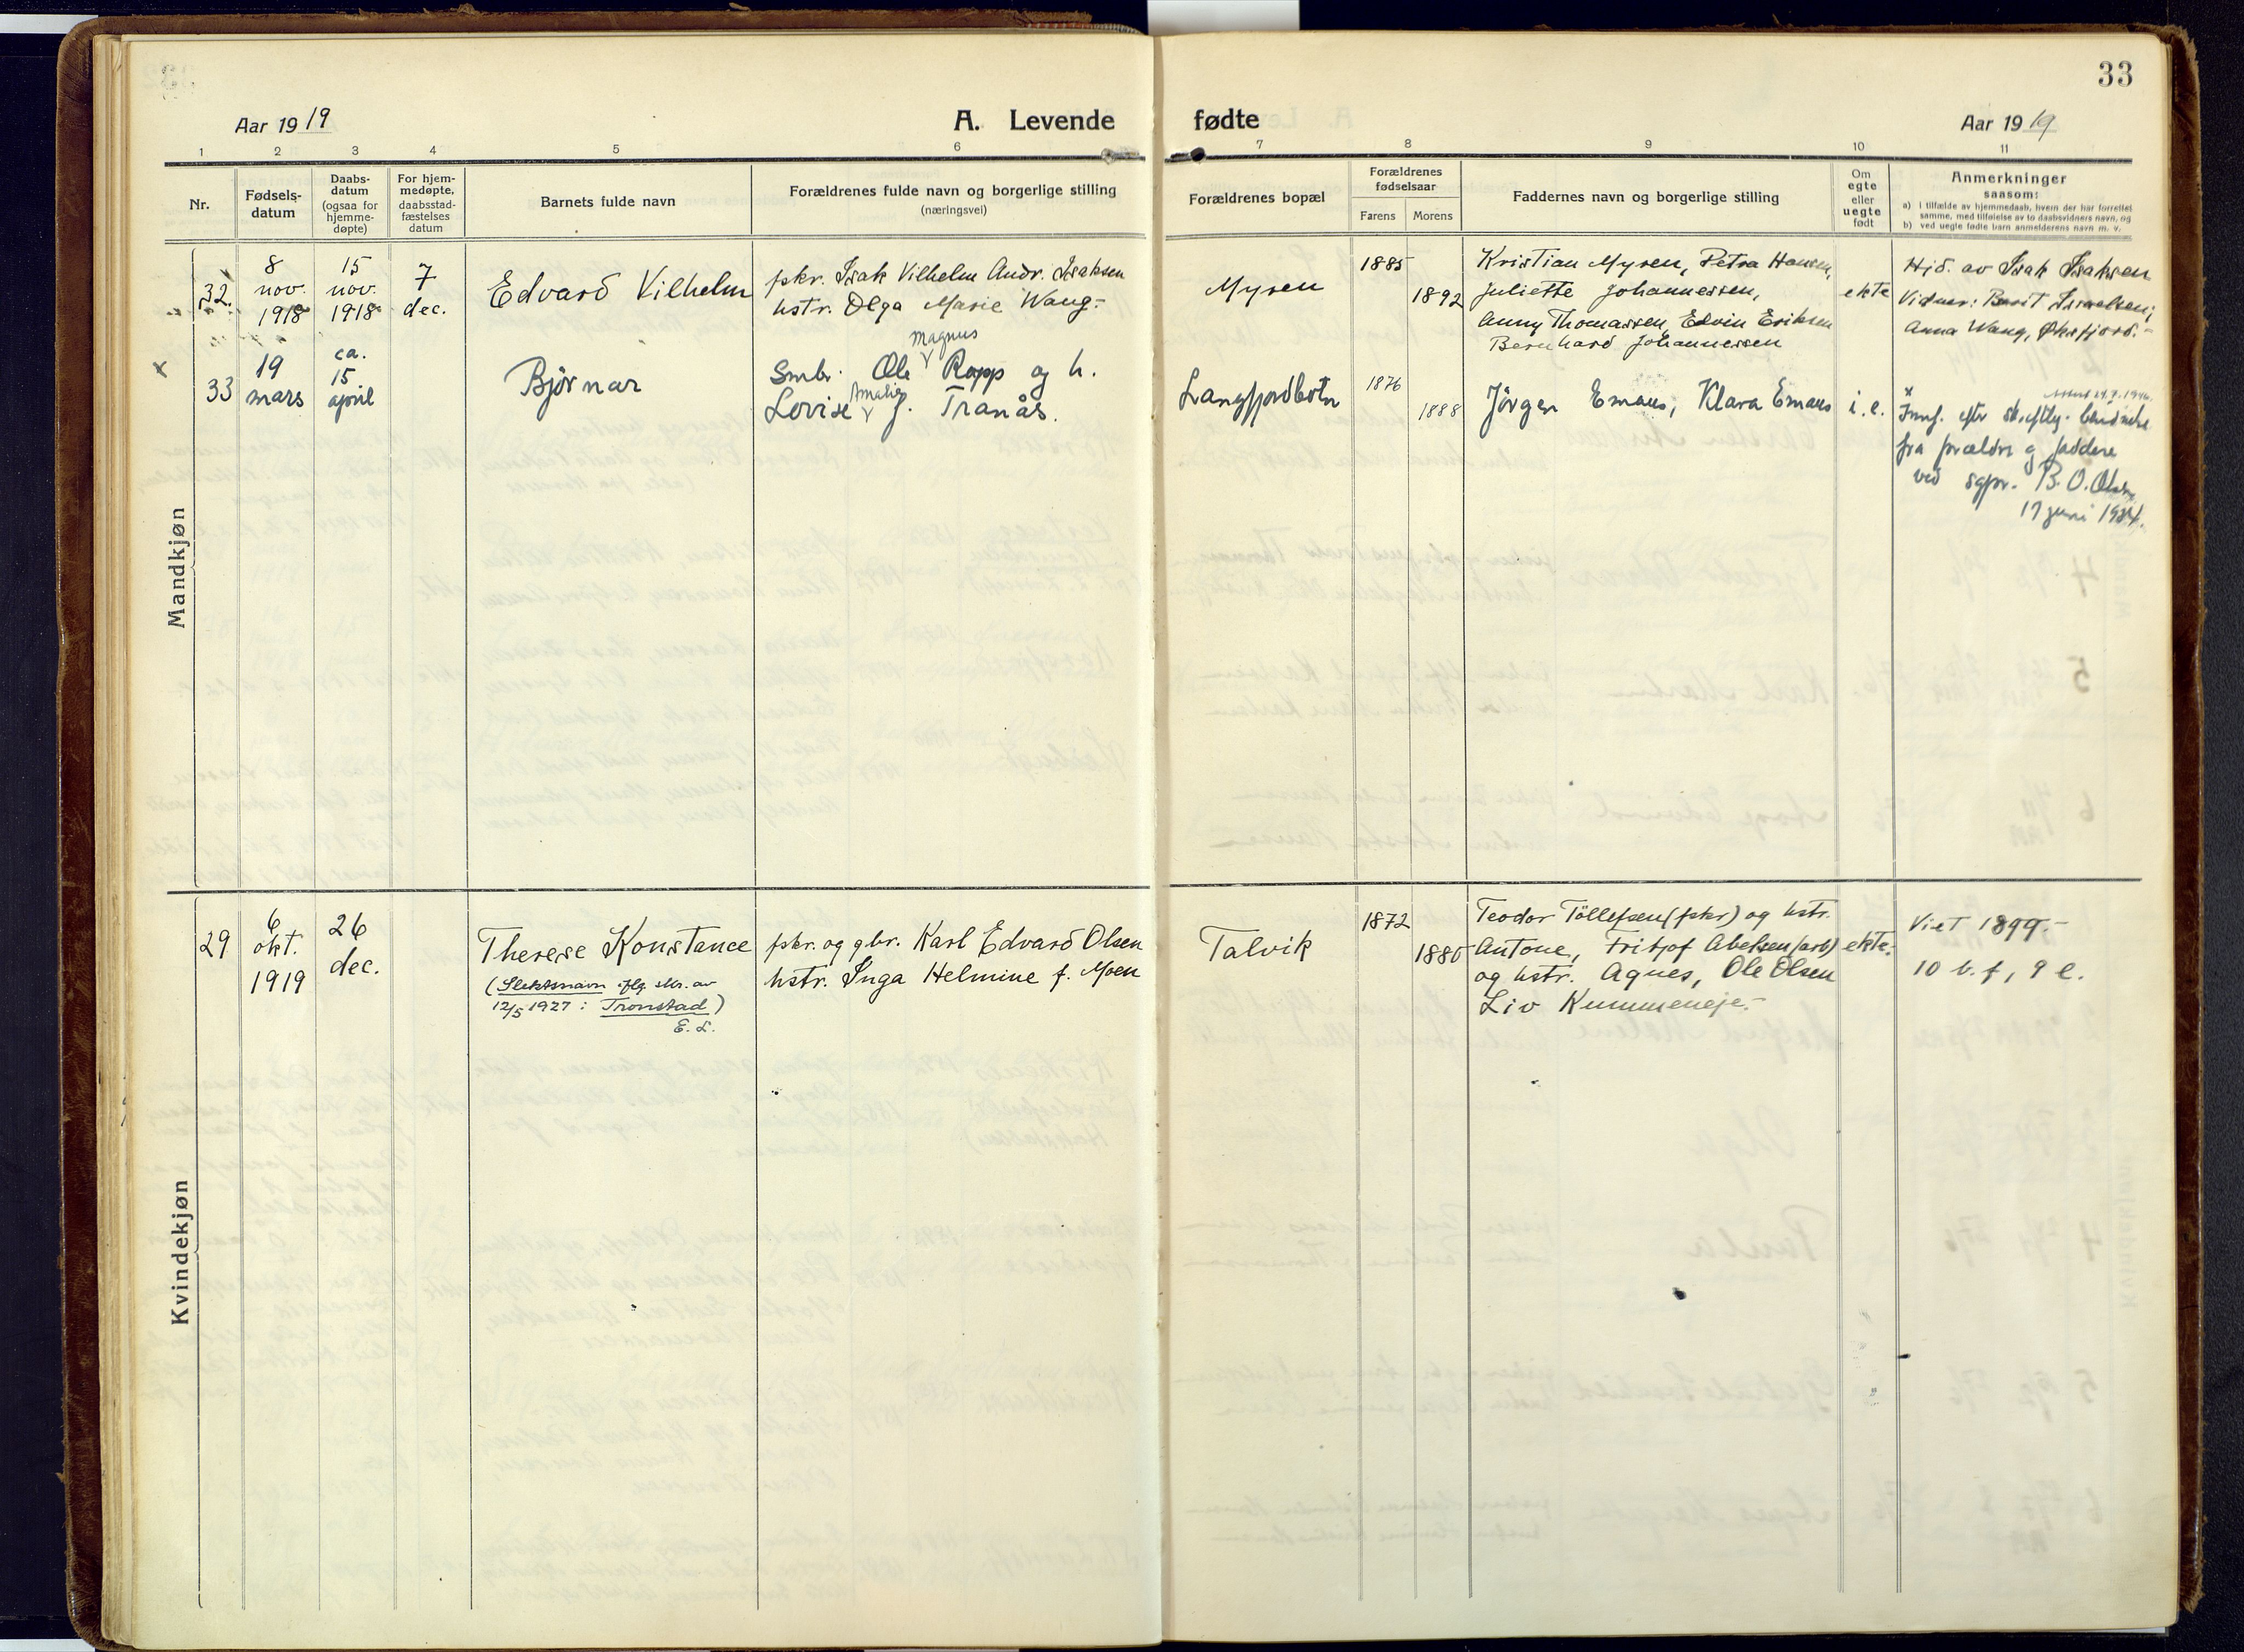 33
Aar 19 19
A. Levende fødte
Aar 19 19
1 2 3 4 5 6 7 8 9 10 11
Nr.
Fødsels-
datum
Daabs-
datum
(ogsaa for
hjemme-
døpte)
For hjem-
medøpte,
daabsstad-
fæstelses
datum
Barnets fulde navn
Forældrenes fulde navn og borgerlige stilling
(næringsvei)
Forældrenes bopæl
Forældrenes
fødselsaar
Farens Morens
Faddernes navn og borgerlige stilling
Om
egte
eller
uegte
født
Anmerkninger
saasom:
a) i tilfælde av hjemmedaab, hvem der har forrettet
samme, med tilføielse av to daabsvidners navn, og
b) ved uegte fødte barn anmelderens navn m. v.
Mandkjøn
32.
8
nov.
1918
15
nov.
1918
7
dec.
Edvard Vilhelm
fskr. Isak Vilhelm Andr. Isaksen
hstr. Olga Marie Wang.-
Mysen
1885
1892
Kristian Mysen, Petra Hansen,
Juliette Johannessen,
Anny Thomassen, Edvin Eriksen
Bernhard Johannessen
ekte
Hjd. av Isak Isaksen
Vidner: Berit Israelsen,
Anna Wang, Øksfjord.-
x
33
19
mars
ca.
15
april
Bjørnar
Magnus
Smbr. Ole Rapp og h.
Amalie
Lovise f. Tranås.
Langfjordbotn
1876
1888
Jörgen Emaus, Klara Emaus
i.e.
x
Innf. efter skriftlig
fra forældre og faddere
ved sgpr. B. O. Olsen
17 juni 1934.
Kvindekjøn
29
6
okt.
1919
26
dec.
Therese Konstance
(Slektsnavn iflg. skr. av
12/5 1927: Tronstad)
E. L.
fskr. og gbr. Karl Edvard Olsen
hstr. Inga Helmine f. Moen
Talvik
1872
1880
Teodor Töllefsen (fskr) og hstr.
Antone, Fritjof Abelsen (arb)
og hstr. Agnes, Ole Olsen
Liv Kummeneje.-
ekte.
Viet 1899.-
10 b. f, 9 l.